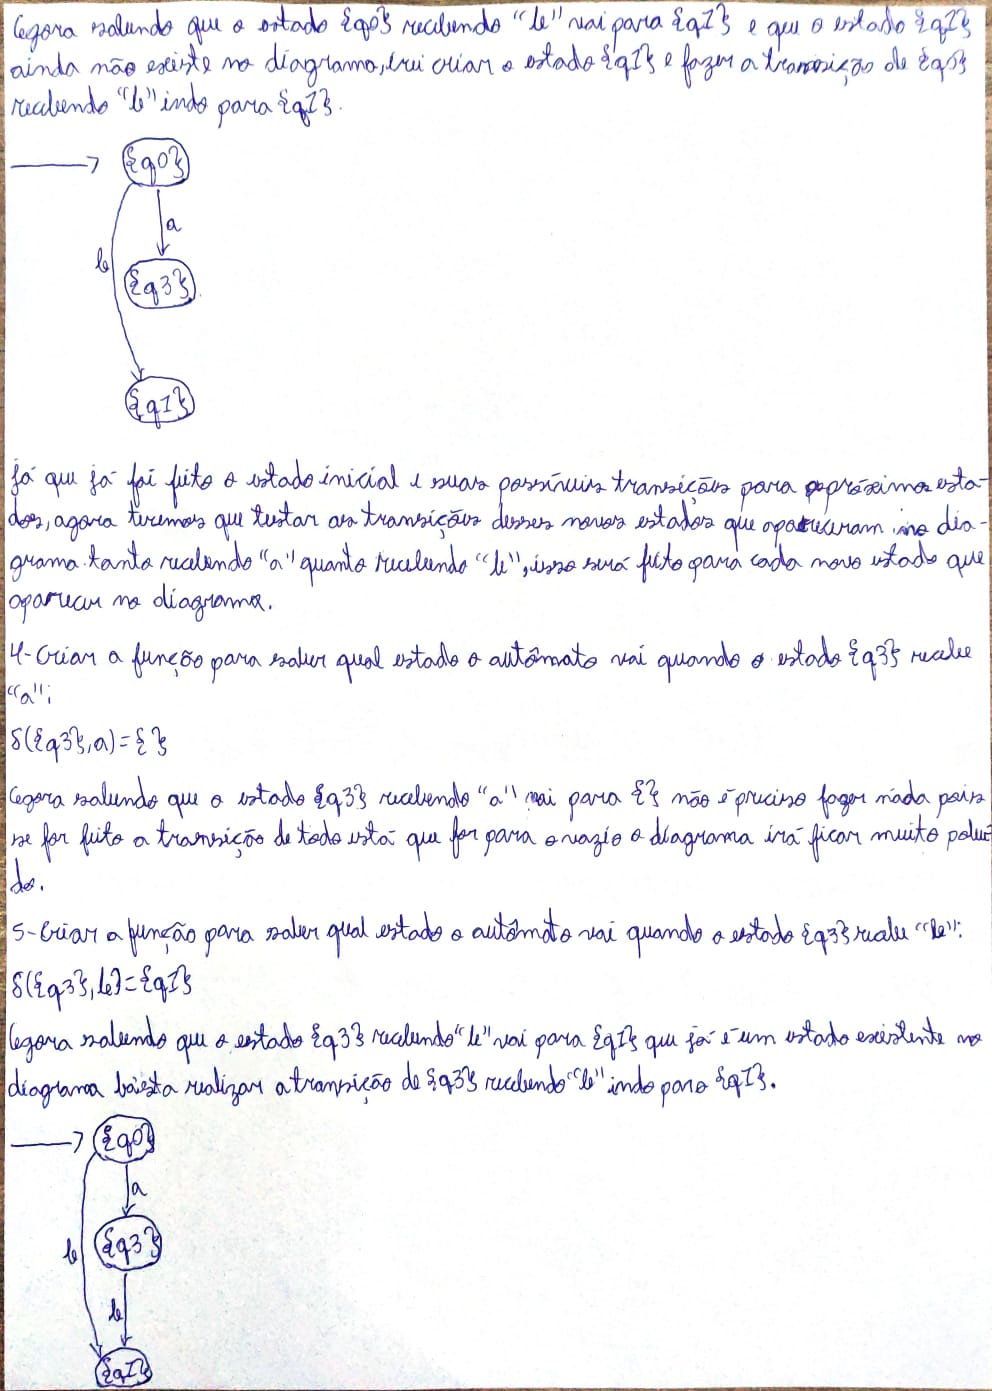 Agora sabendo que o estado {q0} recebendo "b" vai para {q1} e que o estado {q1}
ainda não existe no diagrama, irei criar o estado {q1} e fazer a transição de {q0}
recebendo "b" indo para {q1}.
{q0}
a
b
{q3}
{q1}
Já que já foi feito o estado inicial e suas possíveis transições para próximos esta-
dos, agora teremos que testar as transições desses novos estados que apareceram no dia-
grama tanto recebendo "a" quanto recebendo "b", isso será feito para cada novo estado que
aparecer no diagrama.
4-Criar a função para saber qual estado o autômato vai quando o estado {q3} recebe
"a";
δ({q3},a)={}
Agora sabendo que o estado {q3} recebendo "a" vai para {} não é preciso fazer nada pois
se for feito a transição de todo está que for para o vazio o diagrama irá ficar muito polui-
do.
5-Criar a função para saber qual estado o autômato vai quando o estado {q3} recebe "b":
δ({q3},b)={q1}
Agora sabendo que o estado {q3} recebendo "b" vai para {q1} que já é um estado existente no
diagrama basta realizar a transição de {q3} recebendo "b" indo para {q1}.
{q0}
a
b
{q3}
b
{q1}